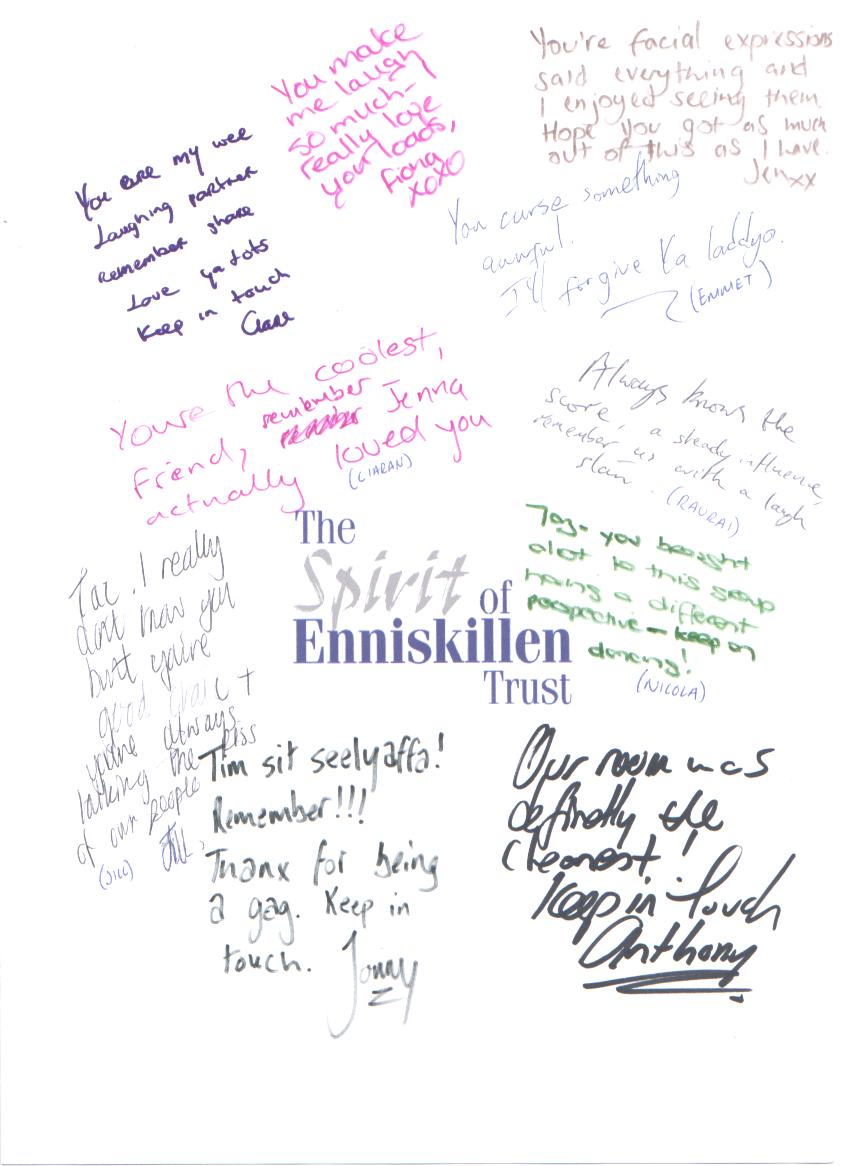 You make
me laugh
so much -
really love
your loads,
Fiona
xoxo
You're facial expressions
said everything and
I enjoyed seeing them.
Hope you got as much
out of this as I have.
Jen xx
You are my wee
Laughing partner
Remember share
Love ya lots
Keep in touch
Clare
You curse something
awful.
I'll forgive Ya laddyo.
(EMMET)
You're the coolest,
friend, remember Jenna
actually loved you
(CIARAN)
Always knows the
score, a steady influence,
remember us with a laugh
slan. (RAURAI)
The
Spirit of
Enniskillen
Trust
Taz - you brought
alot to this group
having a different
perspective - keep on
dancing!
(NICOLA)
Taz. I really
dont know you
but you're
good craic +
you're always
talking the piss
of our people
(JILL) Jill,
Tim sit seelyaffa!
Remember!!!
Thanx for being
a gag. Keep in
touch. Jonny
Our room was
definetly the
cleanest!
Keep in Touch
Anthony